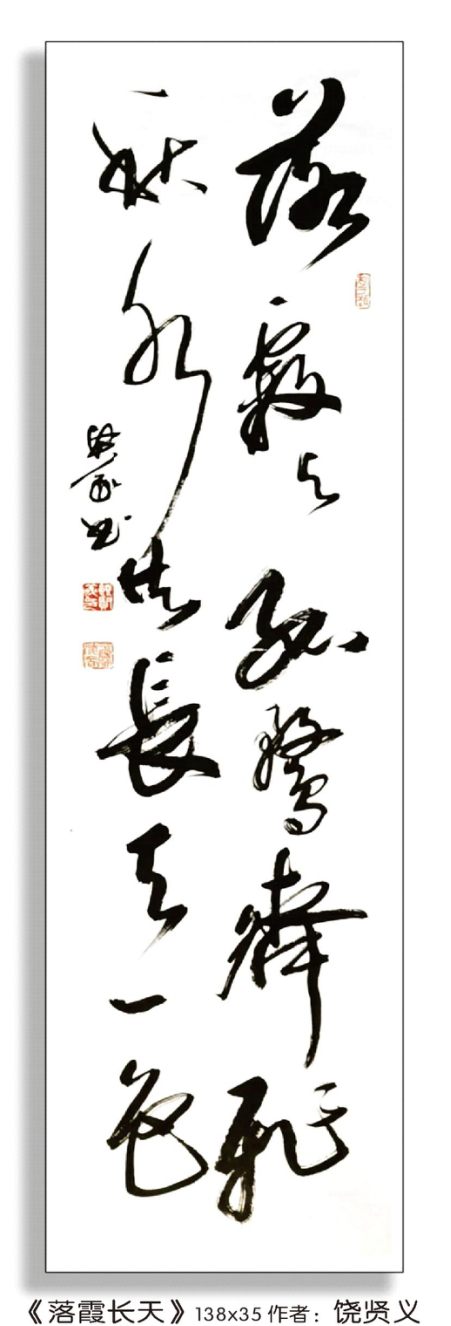 落霞与孤鹜齊飛
秋水共長天一色
《落霞长天》138x35 作者：饶贤义